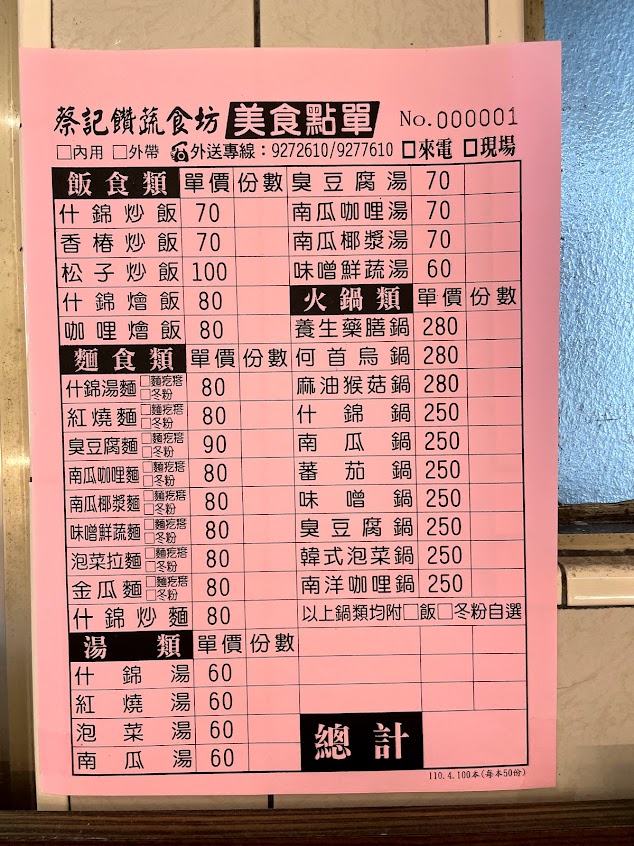 蔡記饡蔬食坊 美食點單 No.000001
□內用 □外帶 ☎外送專線：9272610/9277610 □來電 □現場
飯食類 單價 份數
什錦炒飯 70
香椿炒飯 70
松子炒飯 100
什錦燴飯 80
咖哩燴飯 80
麵食類 單價 份數
什錦湯麵 □麵疙瘩 □冬粉 80
紅燒麵 □麵疙瘩 □冬粉 80
臭豆腐麵 □麵疙瘩 □冬粉 90
南瓜咖哩麵 □麵疙瘩 □冬粉 80
南瓜椰漿麵 □麵疙瘩 □冬粉 80
味噌鮮蔬麵 □麵疙瘩 □冬粉 80
泡菜拉麵 □麵疙瘩 □冬粉 80
金瓜麵 □麵疙瘩 □冬粉 80
什錦炒麵 80
湯類 單價 份數
什錦湯 60
紅燒湯 60
泡菜湯 60
南瓜湯 60
臭豆腐湯 70
南瓜咖哩湯 70
南瓜椰漿湯 70
味噌鮮蔬湯 60
火鍋類 單價 份數
養生藥膳鍋 280
何首烏鍋 280
麻油猴菇鍋 280
什錦鍋 250
南瓜鍋 250
蕃茄鍋 250
味噌鍋 250
臭豆腐鍋 250
韓式泡菜鍋 250
南洋咖哩鍋 250
以上鍋類均附□飯□冬粉自選
總計
110.4.100本(每本50份)